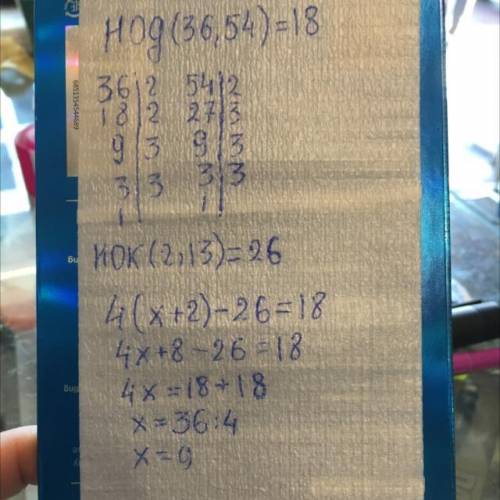 НОД(36,54)=18
36|2 54|2
18|2 27|3
9|3 9|3
3|3 3|3
1| 1|
НОК(2,13)=26
4(x+2)-26=18
4x+8-26=18
4x=18+18
x=36:4
x=9